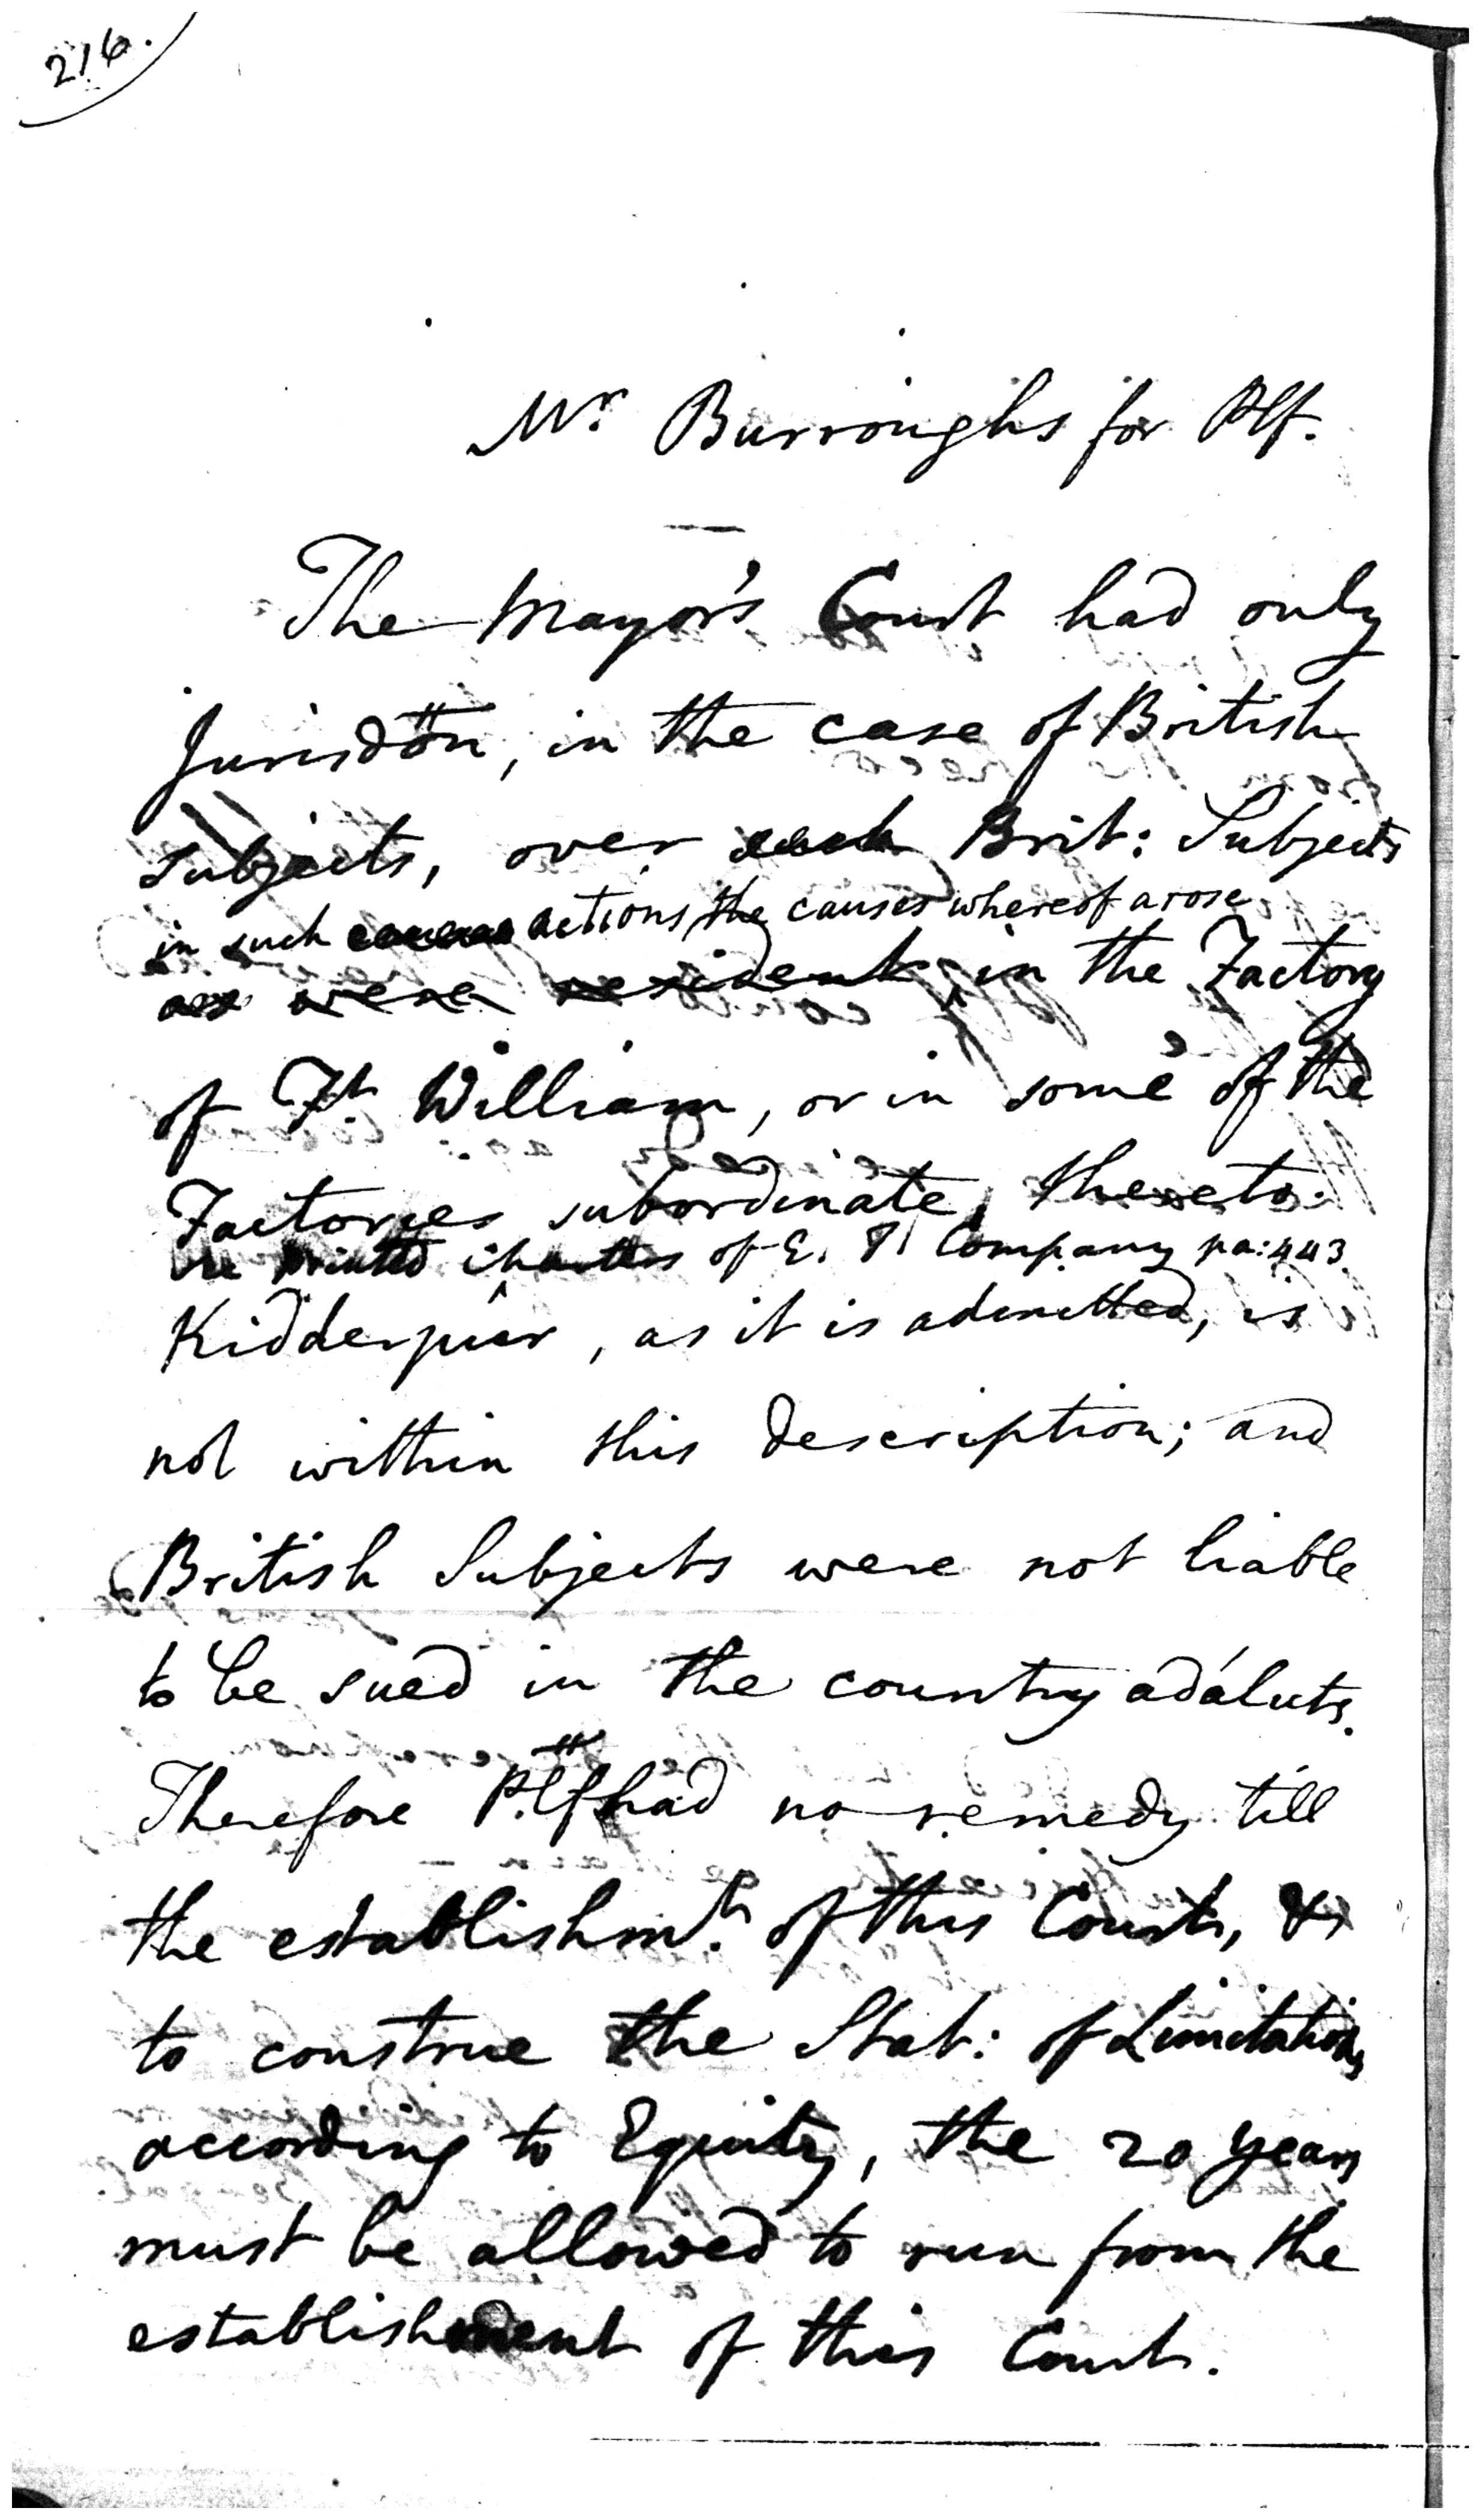 216.
Mr. Burroughs for Plf.
The Mayor's Court had only
Jurisdön, in the case of British
subjects, over such Brit: Subjects
in such actions the causes whereof arose
as were resident, in the Factory
of Ft. William, or in some of the
Factories subordinate, thereto.
printed charters of E. I. Company pa: 443
Kidderpúr, as it is admitted, is
not within this description; and
British Subjects were not liable
to be sued in the country adáluts.
Therefore Plf had no remedy till
the establishmt. of this Court, &
to construe the Stat: of Limitations
according to Equity, the 20 years
must be allowed to run from the
establishment of this Court.